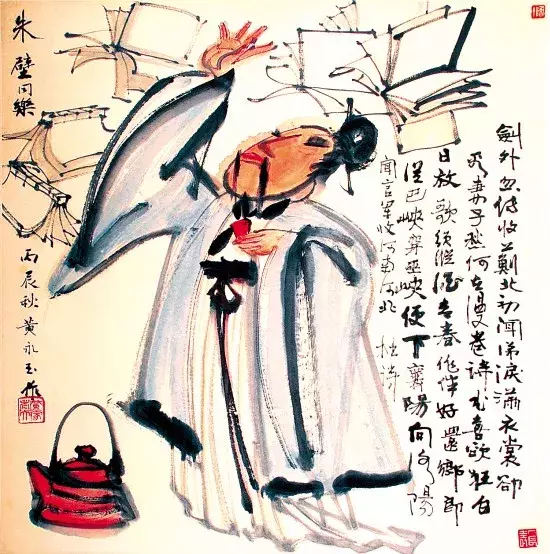 劍外忽传收薊北初闻涕淚滿衣裳卻
看妻子愁何在漫卷詩书喜欲狂白
日放歌須縱酒青春作伴好還鄉即
從巴峽穿巫峽便下襄陽向洛陽
聞官軍收河南河北 杜詩
朱壁同樂
丙辰秋黄永玉作